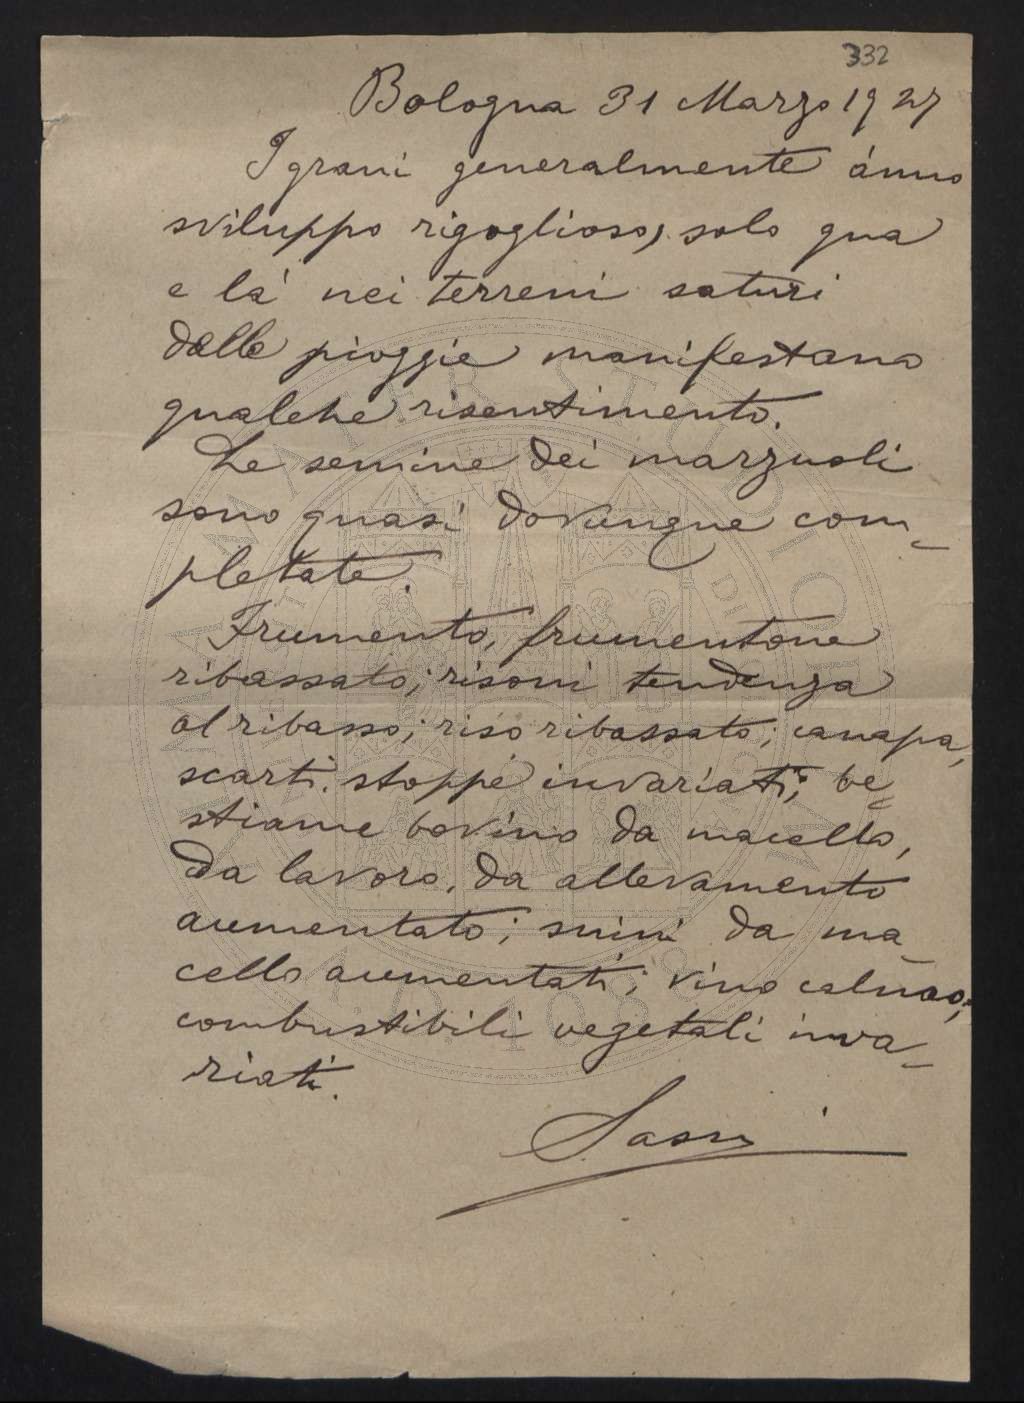 332
Bologna 31 Marzo 1927
I grani generalmente ánno
sviluppo rigoglioso, solo qua
e là nei terreni saturi
dalle pioggie manifestano
qualche risentimento.
Le semine dei marzuoli
sono quasi dovunque com-
pletate.
Frumento, frumentone
ribassato; risoni tendenza
al ribasso; riso ribassato; canapa,
scarti, stoppe invariati; be-
stiame bovino da macello,
da lavoro, da allevamento
aumentato; suini da ma
cello aumentati; vino calmo;
combustibili vegetali inva-
riati.
Sassi
ALMA MATER STUDIORUM
A.D. 1088